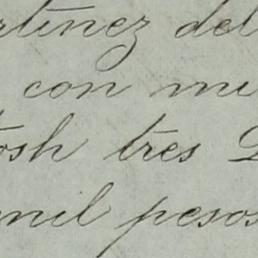 rtinez del
con mi
osh tres
mil pesos